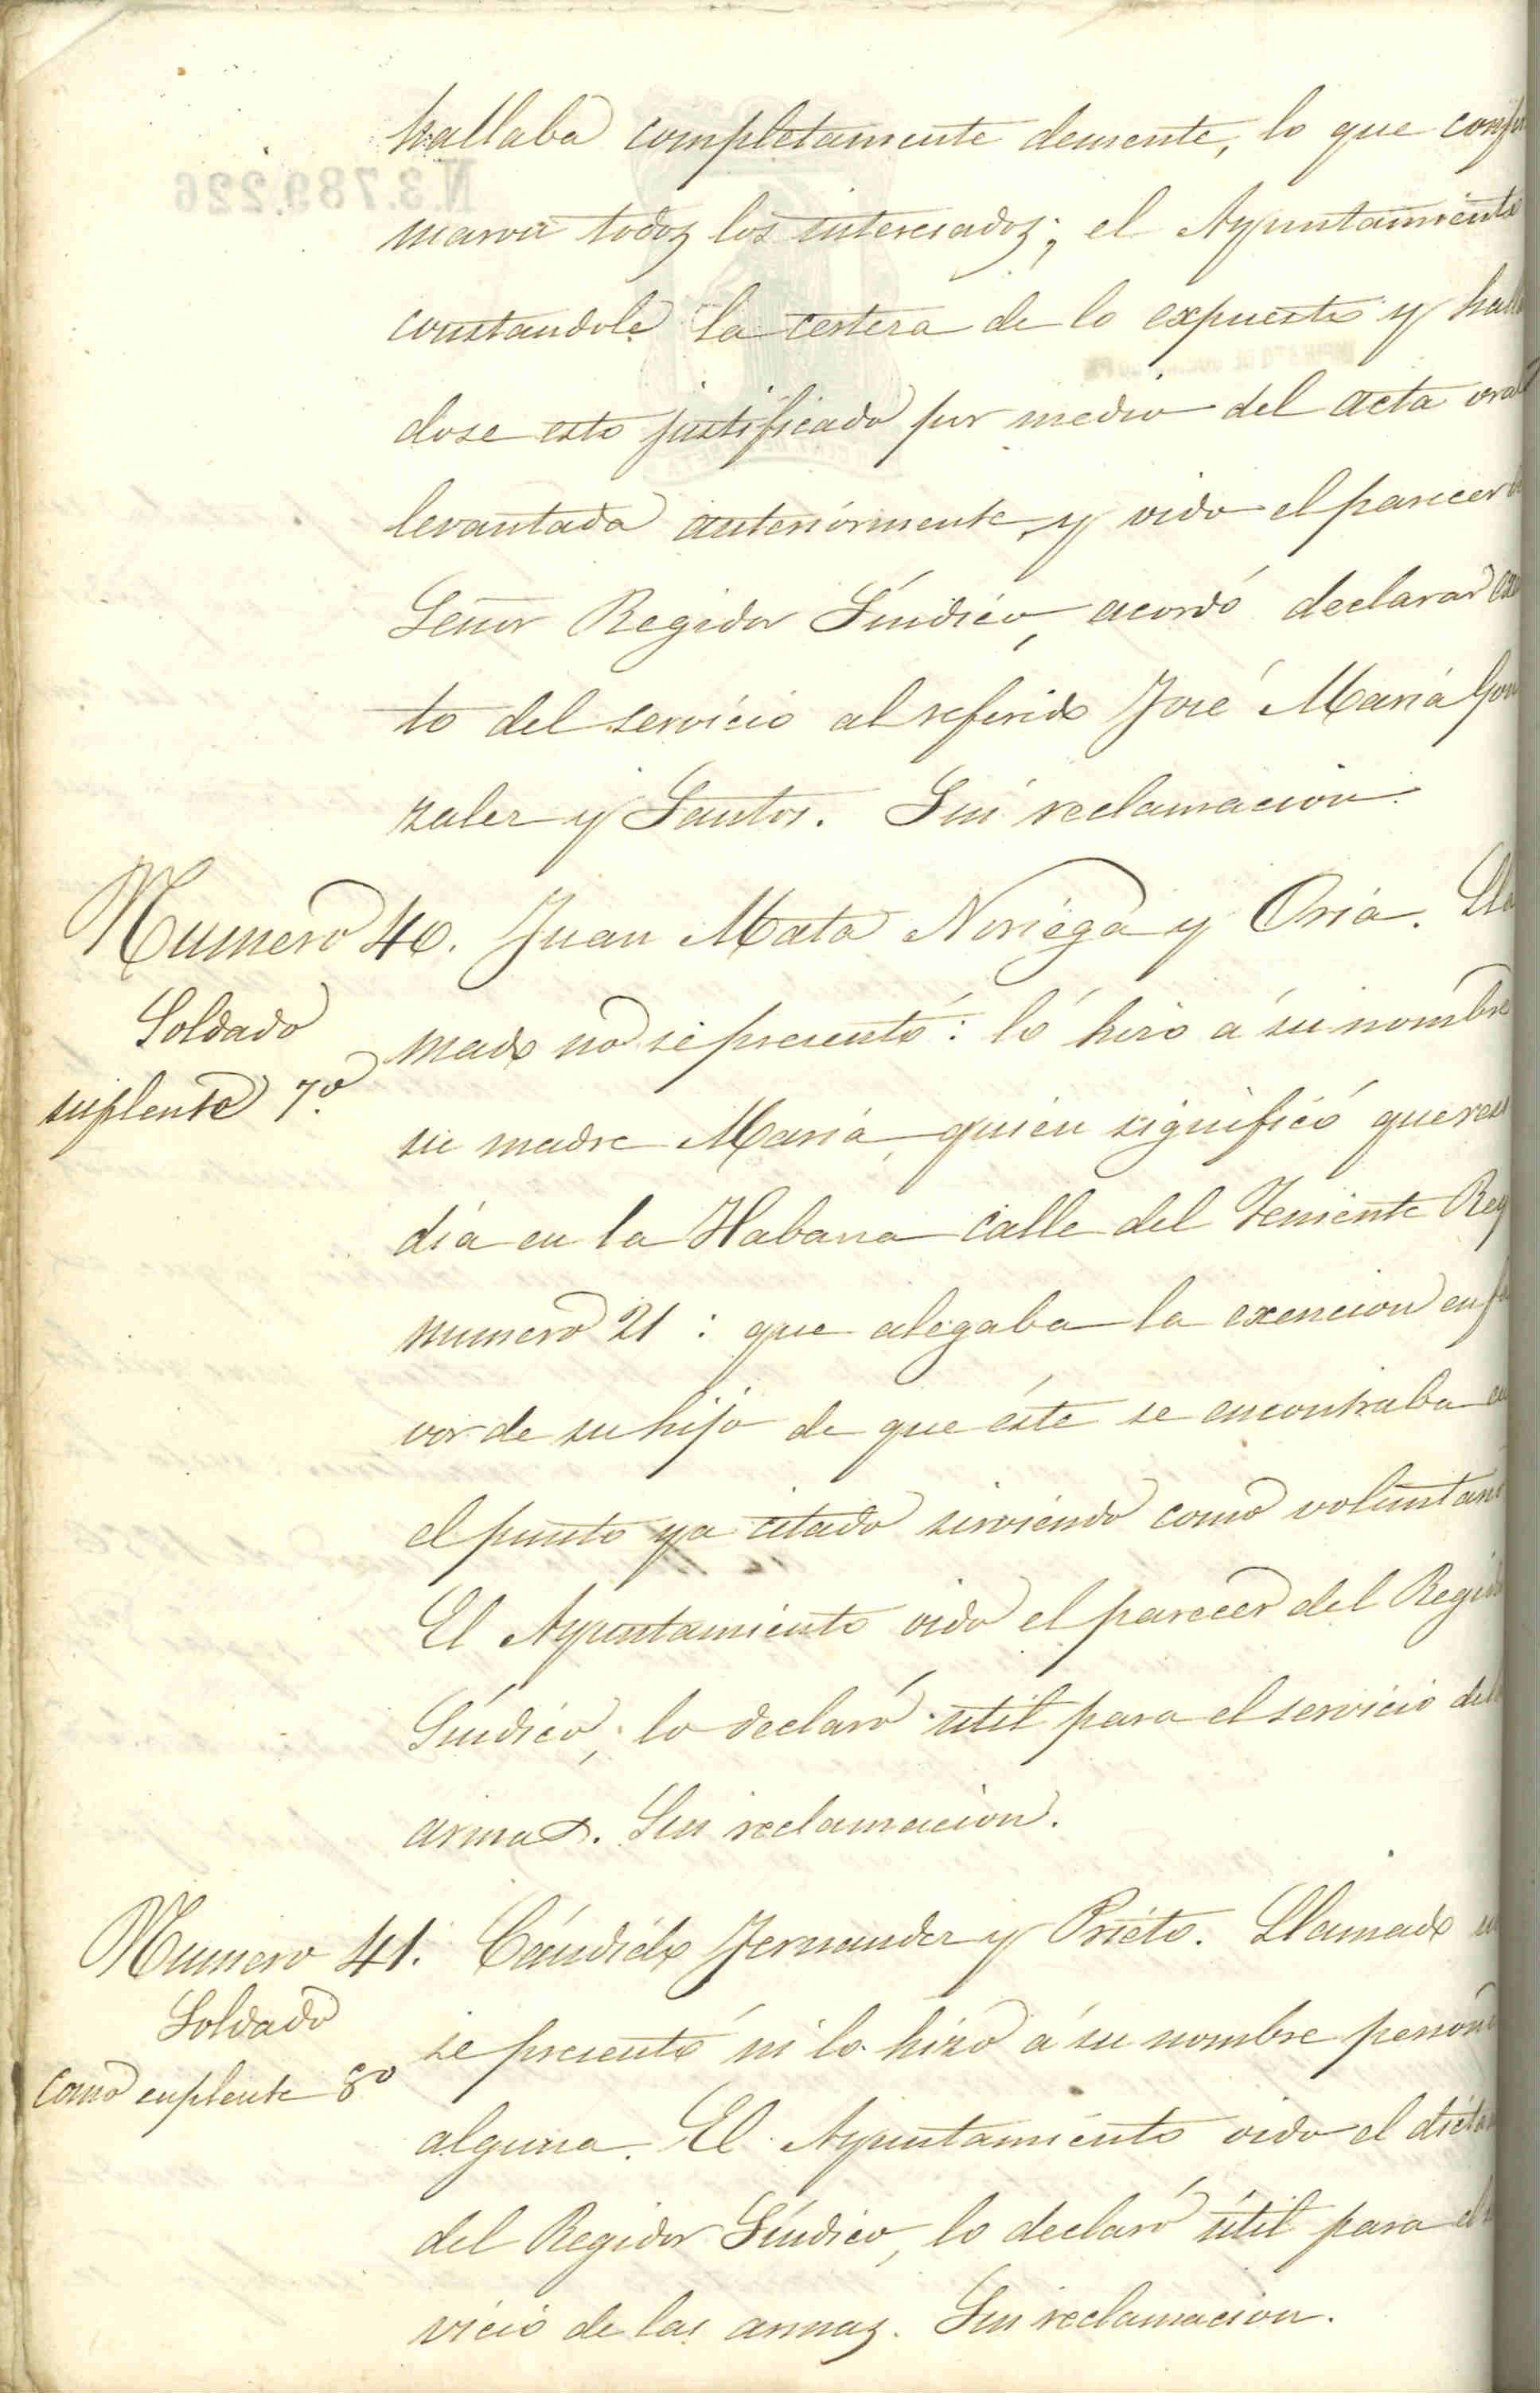 N.3.789.226
hallaba completamente demente, lo que confir
maron todos los interesados; el Ayuntamiento
constandole la certeza de lo expuesto y hallan
dose esto justificado por medio del acta
levantada anteriormente, y oido el parecer
Señor Regidor Síndico, acordó declarar
to del servicio al referido José María Gon
zalez y Santos. Sin reclamacion.
Numero 40. Juan Mata Noriega y Oria. Lla
Soldado
suplente 7º.
mado no se presentó: ló hizo á su nombre
su madre María, quien significó que resi
día en la Habana calle del Teniente Rey
numero 21: que alegaba la exencion en fa
vor de su hijo de que éste se encontraba en
el punto ya citado sirviendo como voluntario
El Ayuntamiento oido el parecer del Regidor
Síndico, lo declaró útil para el servicio de
armas. Sin reclamacion.
Numero 41. Cándido Fernandez y Prieto. Llamado
Soldado
como suplente 8º
se presentó ni lo hizo á su nombre persona
alguna. El Ayuntamiento oido el
del Regidor Síndico, lo declaró útil para el
vicio de las armas. Sin reclamacion.